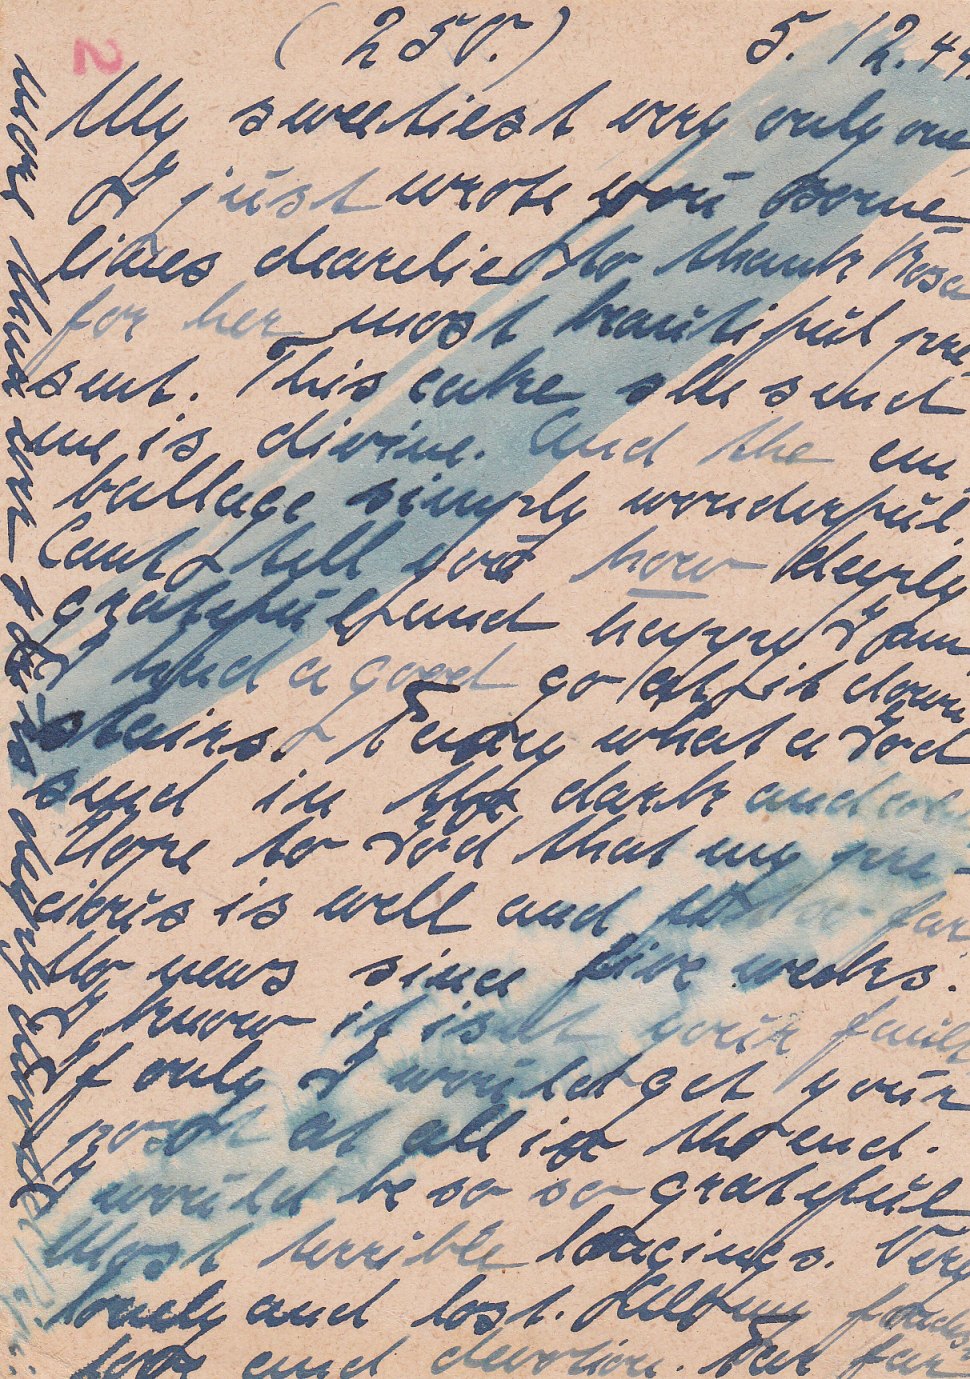 2
(250.) 5.12.44.
My sweetiest very only one,
I just wrote you some
lines dearelie to thank Rosa
for her most beautiful pre-
sent. This cake she send
me is divine. And the em
ballage simply wonderful.
Cant I tell you how deeply
grateful and happy I am
I had a good go at it down
stairs. I fancy what a God
send in the dark and cold
Hope to God that my pre-
cious is well and not too far
No news since five weeks.
I know it isnt your fault
If only I would get your
post at all in the end.
I would be so so grateful
Most terrible longings. Very
lonely and lost. All my fondest
love and devotion. Far far
more than ever yours deeply